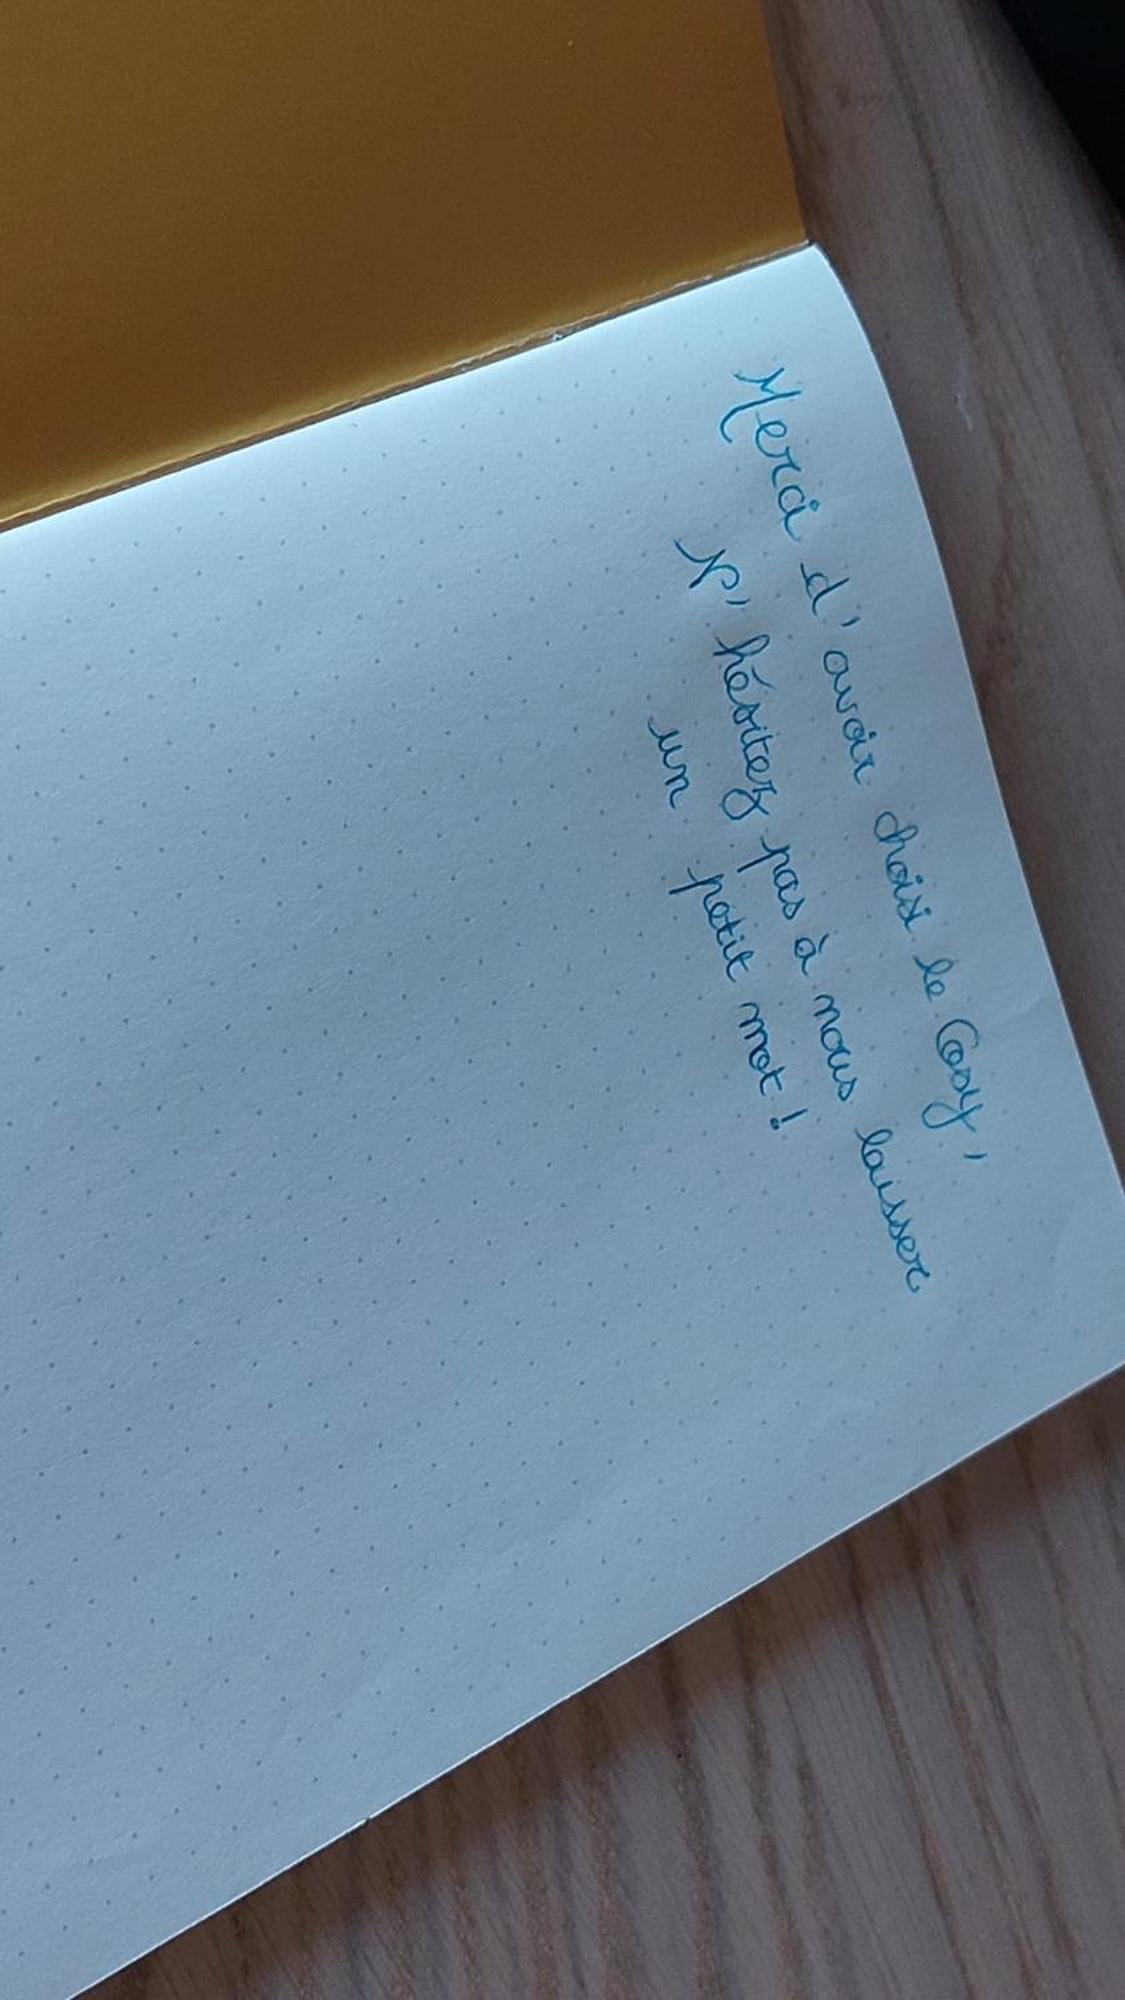 Merci d'avoir choisi le Cosy,
N'hésitez pas à nous laisser
un petit mot !